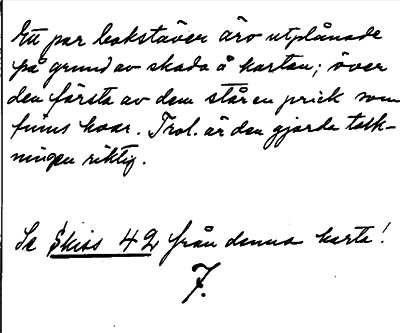 Ett par bokstäver äro utplånade
på grund av skada å kartan; över
den första av dem står en prick som
finns kvar. Trol. är den gjorda tolk-
ningen riktig.
Se Skiss 42 från denna karta!
F.